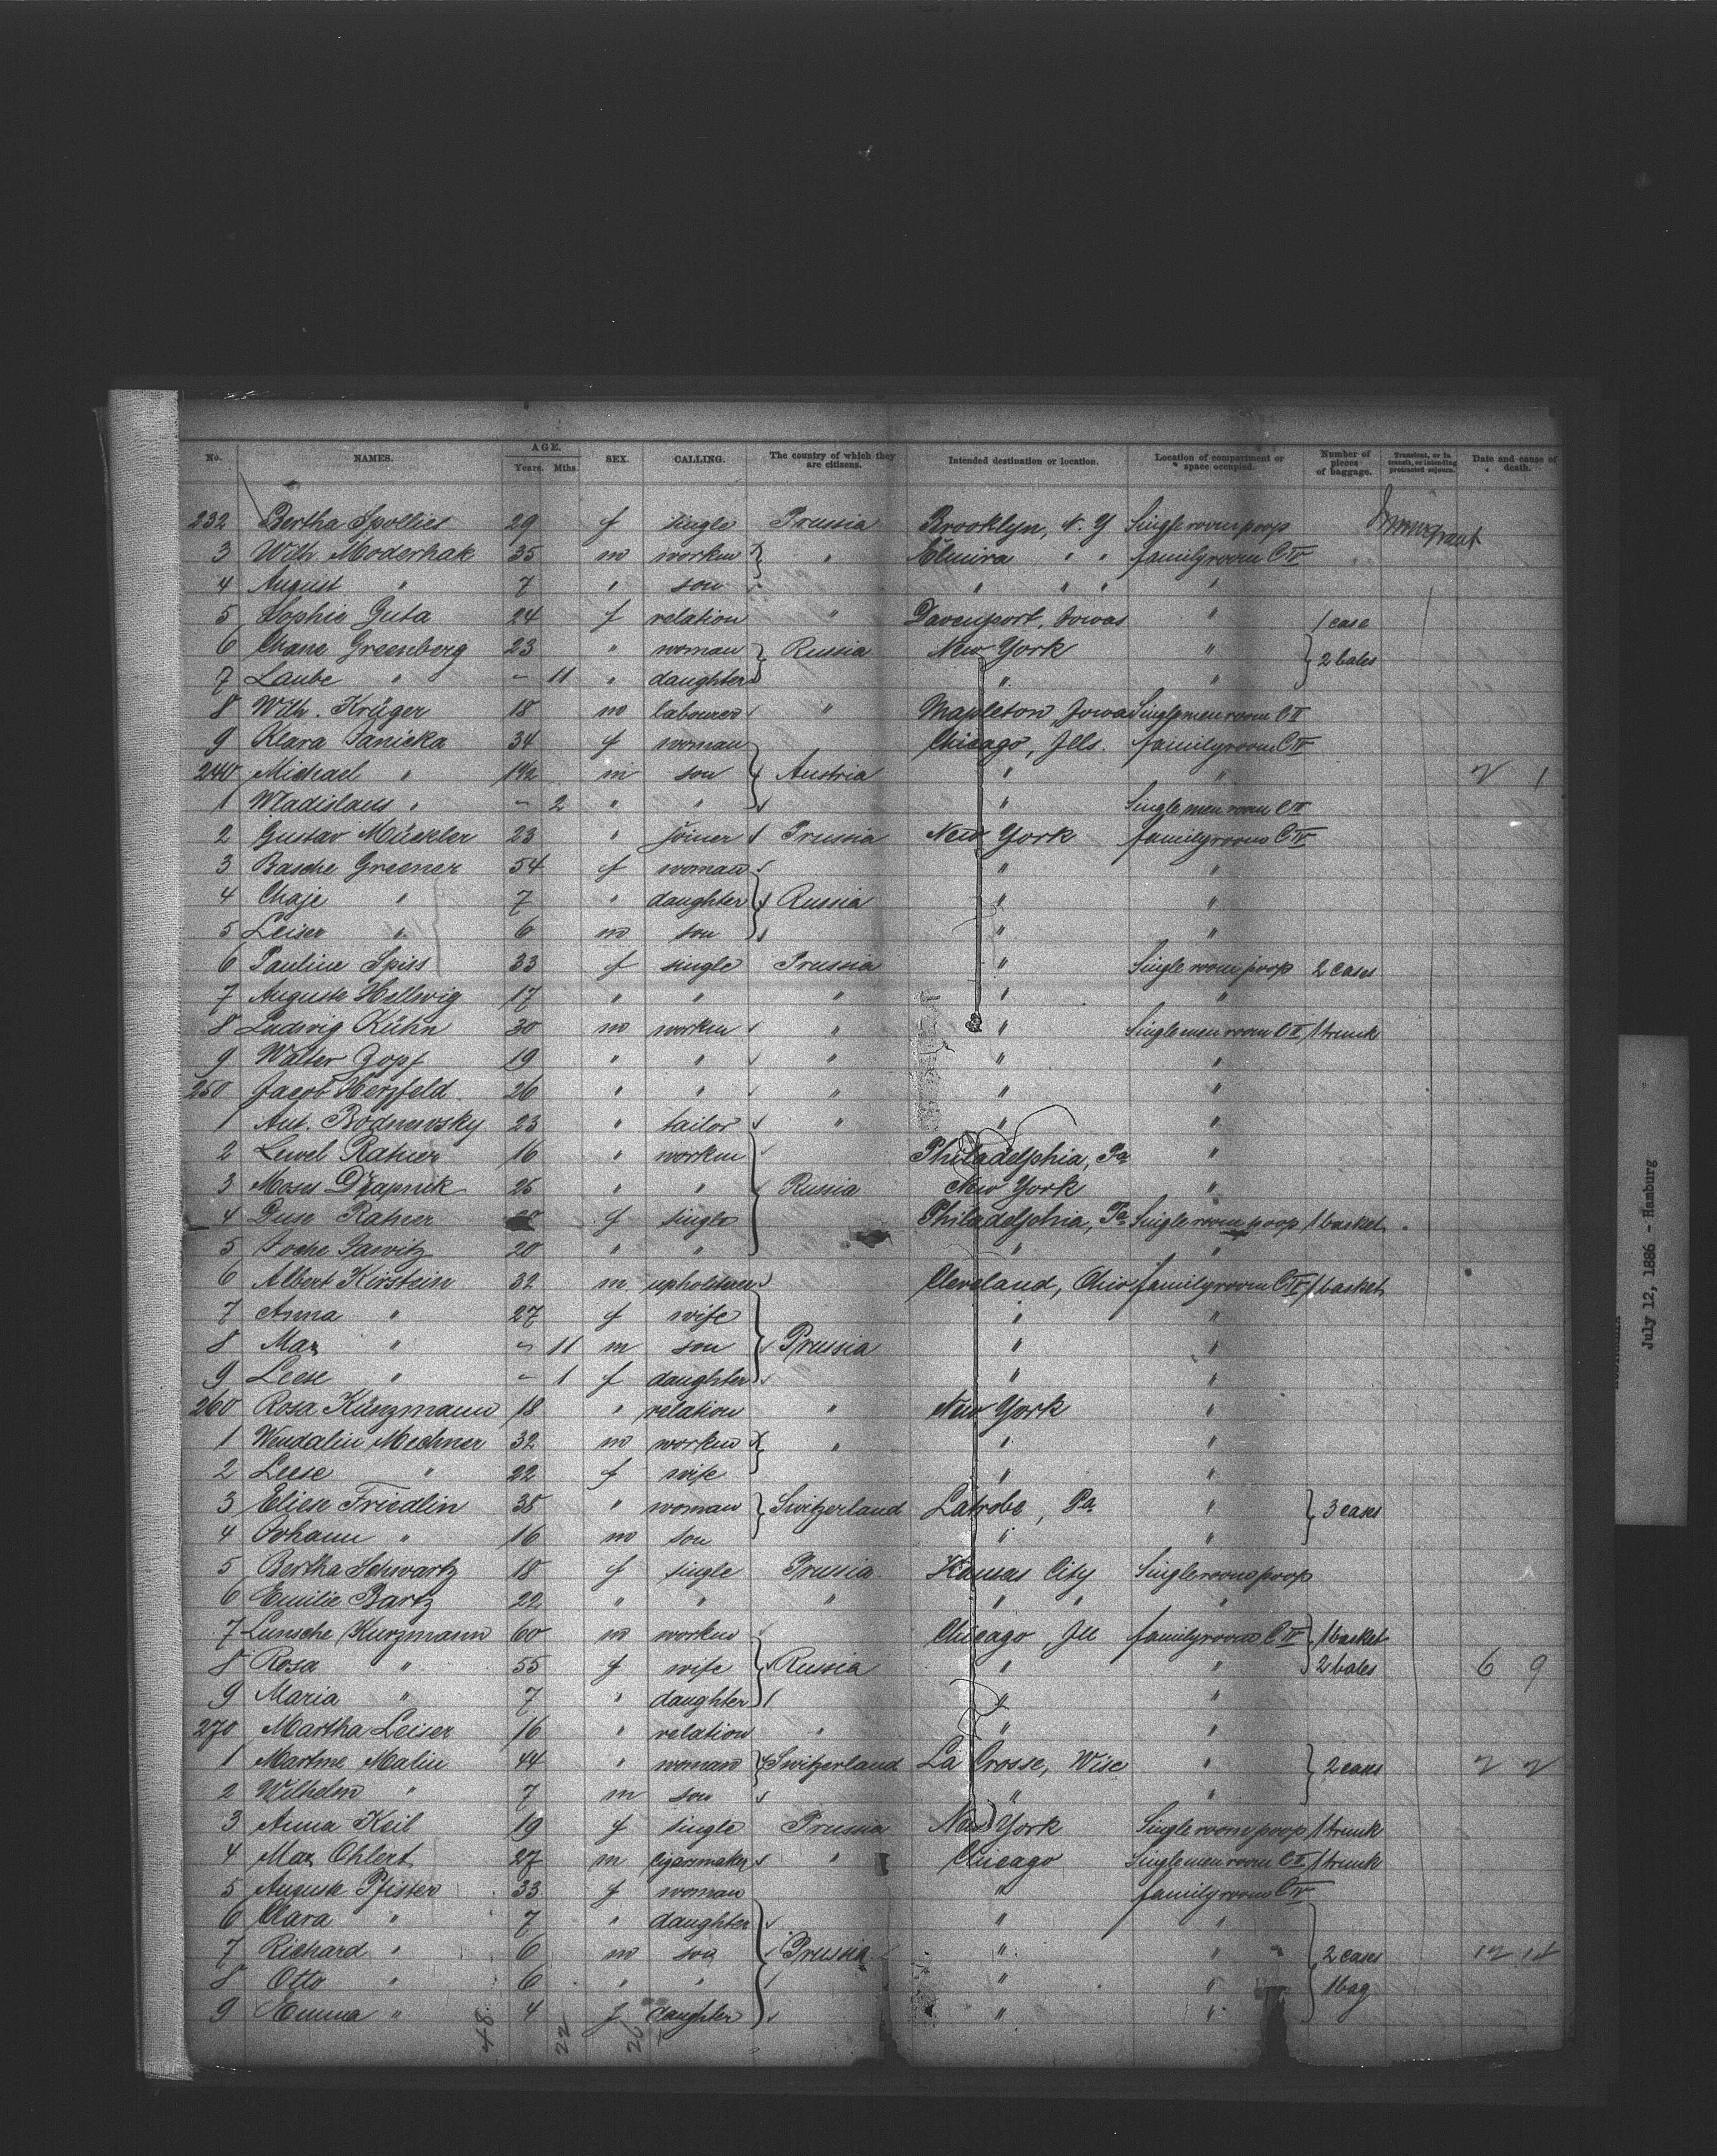 No. NAMES. AGE. Years. Mths. SEX. CALLING. The country of which they are citizens. Intended destination or location. Location of compartment or space occupied. Number of pieces of baggage. Transient, or in transit, or intending protracted sojourn. Date and cause of death.
232 Bertha Spollies 29 f single Prussia Brooklyn, N. Y Single room poop Immigrant
3 Wilh. Moderhak 35 m workm " Elmira " " family room C IV
4 August " 7 " son " " " "
5 Sophie Guta 24 f relation " Davenport, Iowas " 1 case
6 Chane Greenberg 23 " woman Russia New York " 2 bales
7 Laube " - 11 " daughter " "
8 Wilh. Krüger 18 m labourer " Mapleton, Jowa Single men room C II
9 Klara Janicka 34 f woman Chicago, Jlls. family room C IV
240 Michael " 1 1/2 m son Austria " " 2 1
1 Wladislaus " - 2 " " " Single men room C II
2 Gustav Mückler 23 " joiner Prussia New York family room C IV
3 Basche Greener 54 f woman " "
4 Chaje " 7 " daughter Russia " "
5 Leiser " 6 m son " "
6 Pauline Spiss 33 f single Prussia " Single room poop 2 cases
7 Auguste Hellwig 17 " " " " "
8 Ludwig Kühn 30 m workm " " Single men room C II 1 trunk
9 Walter Zopf 19 " " " " "
250 Jacob Herzfeld 26 " " " " "
1 Ant. Bodnewsky 23 " tailor " " "
2 Lewel Ratner 16 " workm Philadelphia, Pa "
3 Moses Drapnik 25 " " Russia New York "
4 Duse Ratner f single Philadelphia, Pa Single room poop 1 basket
5 Joche Sawitz 20 " " " "
6 Albert Kirstein 32 m upholsterer Cleveland, Ohio family room C IV 1 basket
7 Anna " 27 f wife " "
8 Max " - 11 m son Prussia " "
9 Leese " - 1 f daughter " "
260 Rosa Künzmann 18 " relation " New York "
1 Wendalin Mechner 32 m workm " " "
2 Leese " 22 f wife " "
3 Eliese Friedlin 35 " woman Switzerland Latrobe, Pa " 3 cases
4 Johann " 16 m son " "
5 Bertha Schwartz 18 f single Prussia Kansas City Single room poop
6 Emilie Bartz 22 " " " " " "
7 Lunsche Kurzmann 60 m workm Chicago, Jll family room C IV 1 basket
8 Rosa " 55 f wife Russia " " 2 bales 6 9
9 Maria " 7 " daughter " "
270 Martha Leiser 16 " relation " " "
1 Martine Malin 44 " woman Switzerland La Crosse, Wisc " 2 cases 2 2
2 Wilhelm " 7 m son " "
3 Anna Keil 19 f single Prussia New York Single room poop 1 trunk
4 Max Ohlert 27 m cigarmaker " Chicago Single men room C II 1 trunk
5 Auguste Pfister 33 f woman " family room C IV
6 Clara " 7 " daughter " "
7 Richard " 6 m son Prussia " " 2 cases
8 Otto " 6 " " " " 1 bag
9 Emma " 4 f daughter " "
48 22 26
July 12, 1886 - Hamburg